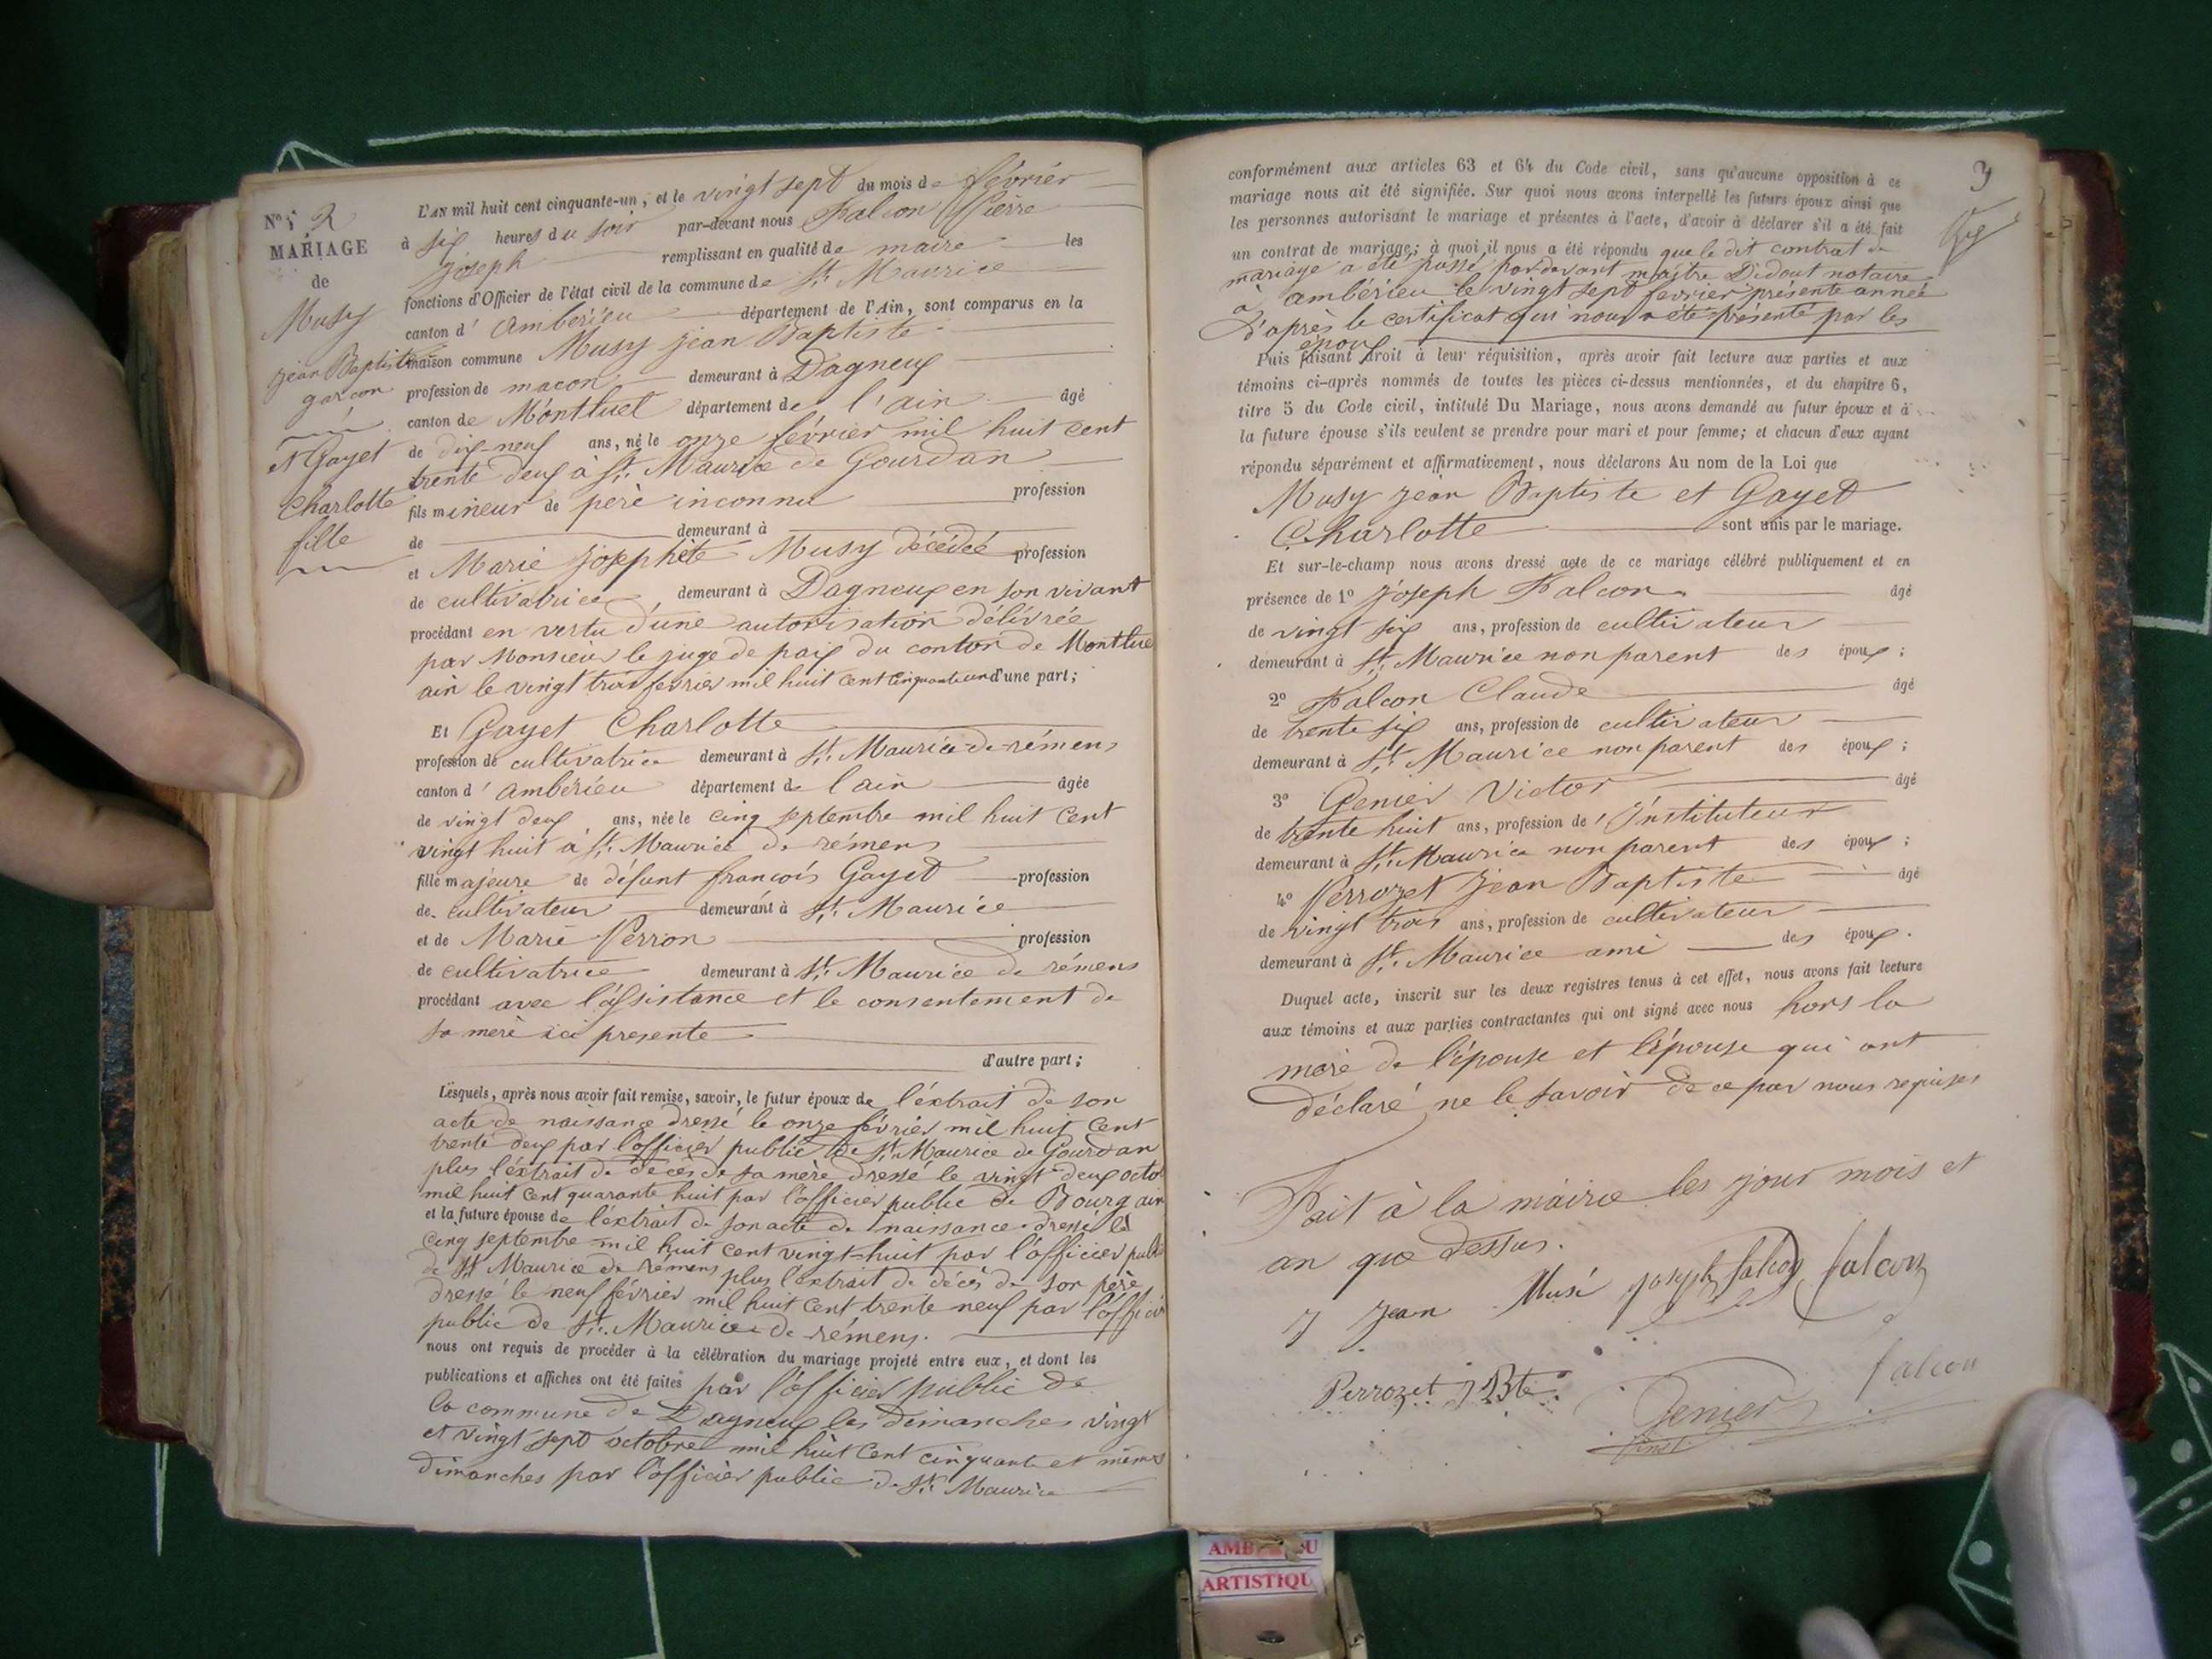 N° 2
MARIAGE
de
Musy
jean Baptiste
garcon
et Gayet
Charlotte
fille
L'AN mil huit cent cinquante-un, et le vingt sept du mois de février
à six heures du soir par-devant nous Falcon Pierre
joseph remplissant en qualité de maire les
fonctions d'Officier de l'état civil de la commune de St. Maurice
canton d' Ambérieu département de l'Ain, sont comparus en la
maison commune Musy jean Baptiste
profession de macon demeurant à Dagneux
canton de Montluel département de l'ain âgé
de dix-neuf ans, né le onze février mil huit cent
trente deux à St. Maurice de Gourdan
fils mineur de père inconnu profession
de demeurant à
et Marie josephete Musy décédée profession
de cultivatrice demeurant à Dagneux en son vivant
procédant en vertu d'une autorisation délivrée
par Monsieur le juge de paix du canton de Montluel
ain le vingt trois fevrier mil huit cent cinquante un d'une part;
Et Gayet Charlotte
profession de cultivatrice demeurant à St. Maurice de rémens
canton d' ambérieu département de l'ain âgée
de vingt deux ans, née le cinq septembre mil huit cent
vingt huit à St. Maurice de rémens
fille majeure de défunt françois Gayet profession
de cultivateur demeurant à St. Maurice
et de Marie Perron profession
de cultivatrice demeurant à St. Maurice de rémens
procédant avec l'assistance et le consentement de
sa mere ici presente
d'autre part;
Lesquels, après nous avoir fait remise, savoir, le futur époux de l'extrait de son
acte de naissance dressé le onze février mil huit cent
trente deux par l'officier public de St. Maurice de Gourdan
plus l'extrait de décès de sa mère dressé le vingt deux octo
mil huit cent quarante huit par l'officier public de Bourg ain
et la future épouse de l'extrait de son acte de naissance dressé le
cinq septembre mil huit cent vingt-huit par l'officier public
de St. Maurice de rémens plus l'extrait de décès de son père
dressé le neuf février mil huit cent trente neuf par l'officier
public de St. Maurice de rémens.
nous ont requis de procéder à la célébration du mariage projeté entre eux, et dont les
publications et affiches ont été faites par l'officier public de
la commune de Dagneux les dimanches vingt
et vingt sept octobre mil huit cent cinquante et mêmes
dimanches par l'officier public de St. Maurice
3
conformément aux articles 63 et 64 du Code civil, sans qu'aucune opposition à ce
mariage nous ait été signifiée. Sur quoi nous avons interpellé les futurs époux ainsi que
les personnes autorisant le mariage et présentes à l'acte, d'avoir à déclarer s'il a été fait
un contrat de mariage; à quoi il nous a été répondu que le dit contrat de
mariage a été passé par devant maître Didout notaire
à ambérieu le vingt sept fevrier présente année
d'après le certificat qui nous a été présenté par les
époux
Puis faisant droit à leur réquisition, après avoir fait lecture aux parties et aux
témoins ci-après nommés de toutes les pièces ci-dessus mentionnées, et du chapitre 6,
titre 5 du Code civil, intitulé Du Mariage, nous avons demandé au futur époux et à
la future épouse s'ils veulent se prendre pour mari et pour femme; et chacun d'eux ayant
répondu séparément et affirmativement, nous déclarons Au nom de la Loi que
Musy jean Baptiste et Gayet
Charlotte sont unis par le mariage.
Et sur-le-champ nous avons dressé acte de ce mariage célébré publiquement et en
présence de 1° joseph Falcon âgé
de vingt six ans, profession de cultivateur
demeurant à St. Maurice non parent des époux;
2° Falcon Claude âgé
de trente six ans, profession de cultivateur
demeurant à St. Maurice non parent des époux;
3° Genier Victor âgé
de trente huit ans, profession de Instituteur
demeurant à St. Maurice non parent des époux;
4° Perrozet jean Baptiste âgé
de vingt trois ans, profession de cultivateur
demeurant à St. Maurice ami des époux.
Duquel acte, inscrit sur les deux registres tenus à cet effet, nous avons fait lecture
aux témoins et aux parties contractantes qui ont signé avec nous hors la
mere de l'épouse et l'épouse qui ont
déclaré ne le savoir de ce par nous requises
Fait à la mairie les jour mois et
an que dessus.
j jean Musi joseph falcon falcon
Perrozet j Bte. Genier falcon
inst.
AMB
ARTISTIQU